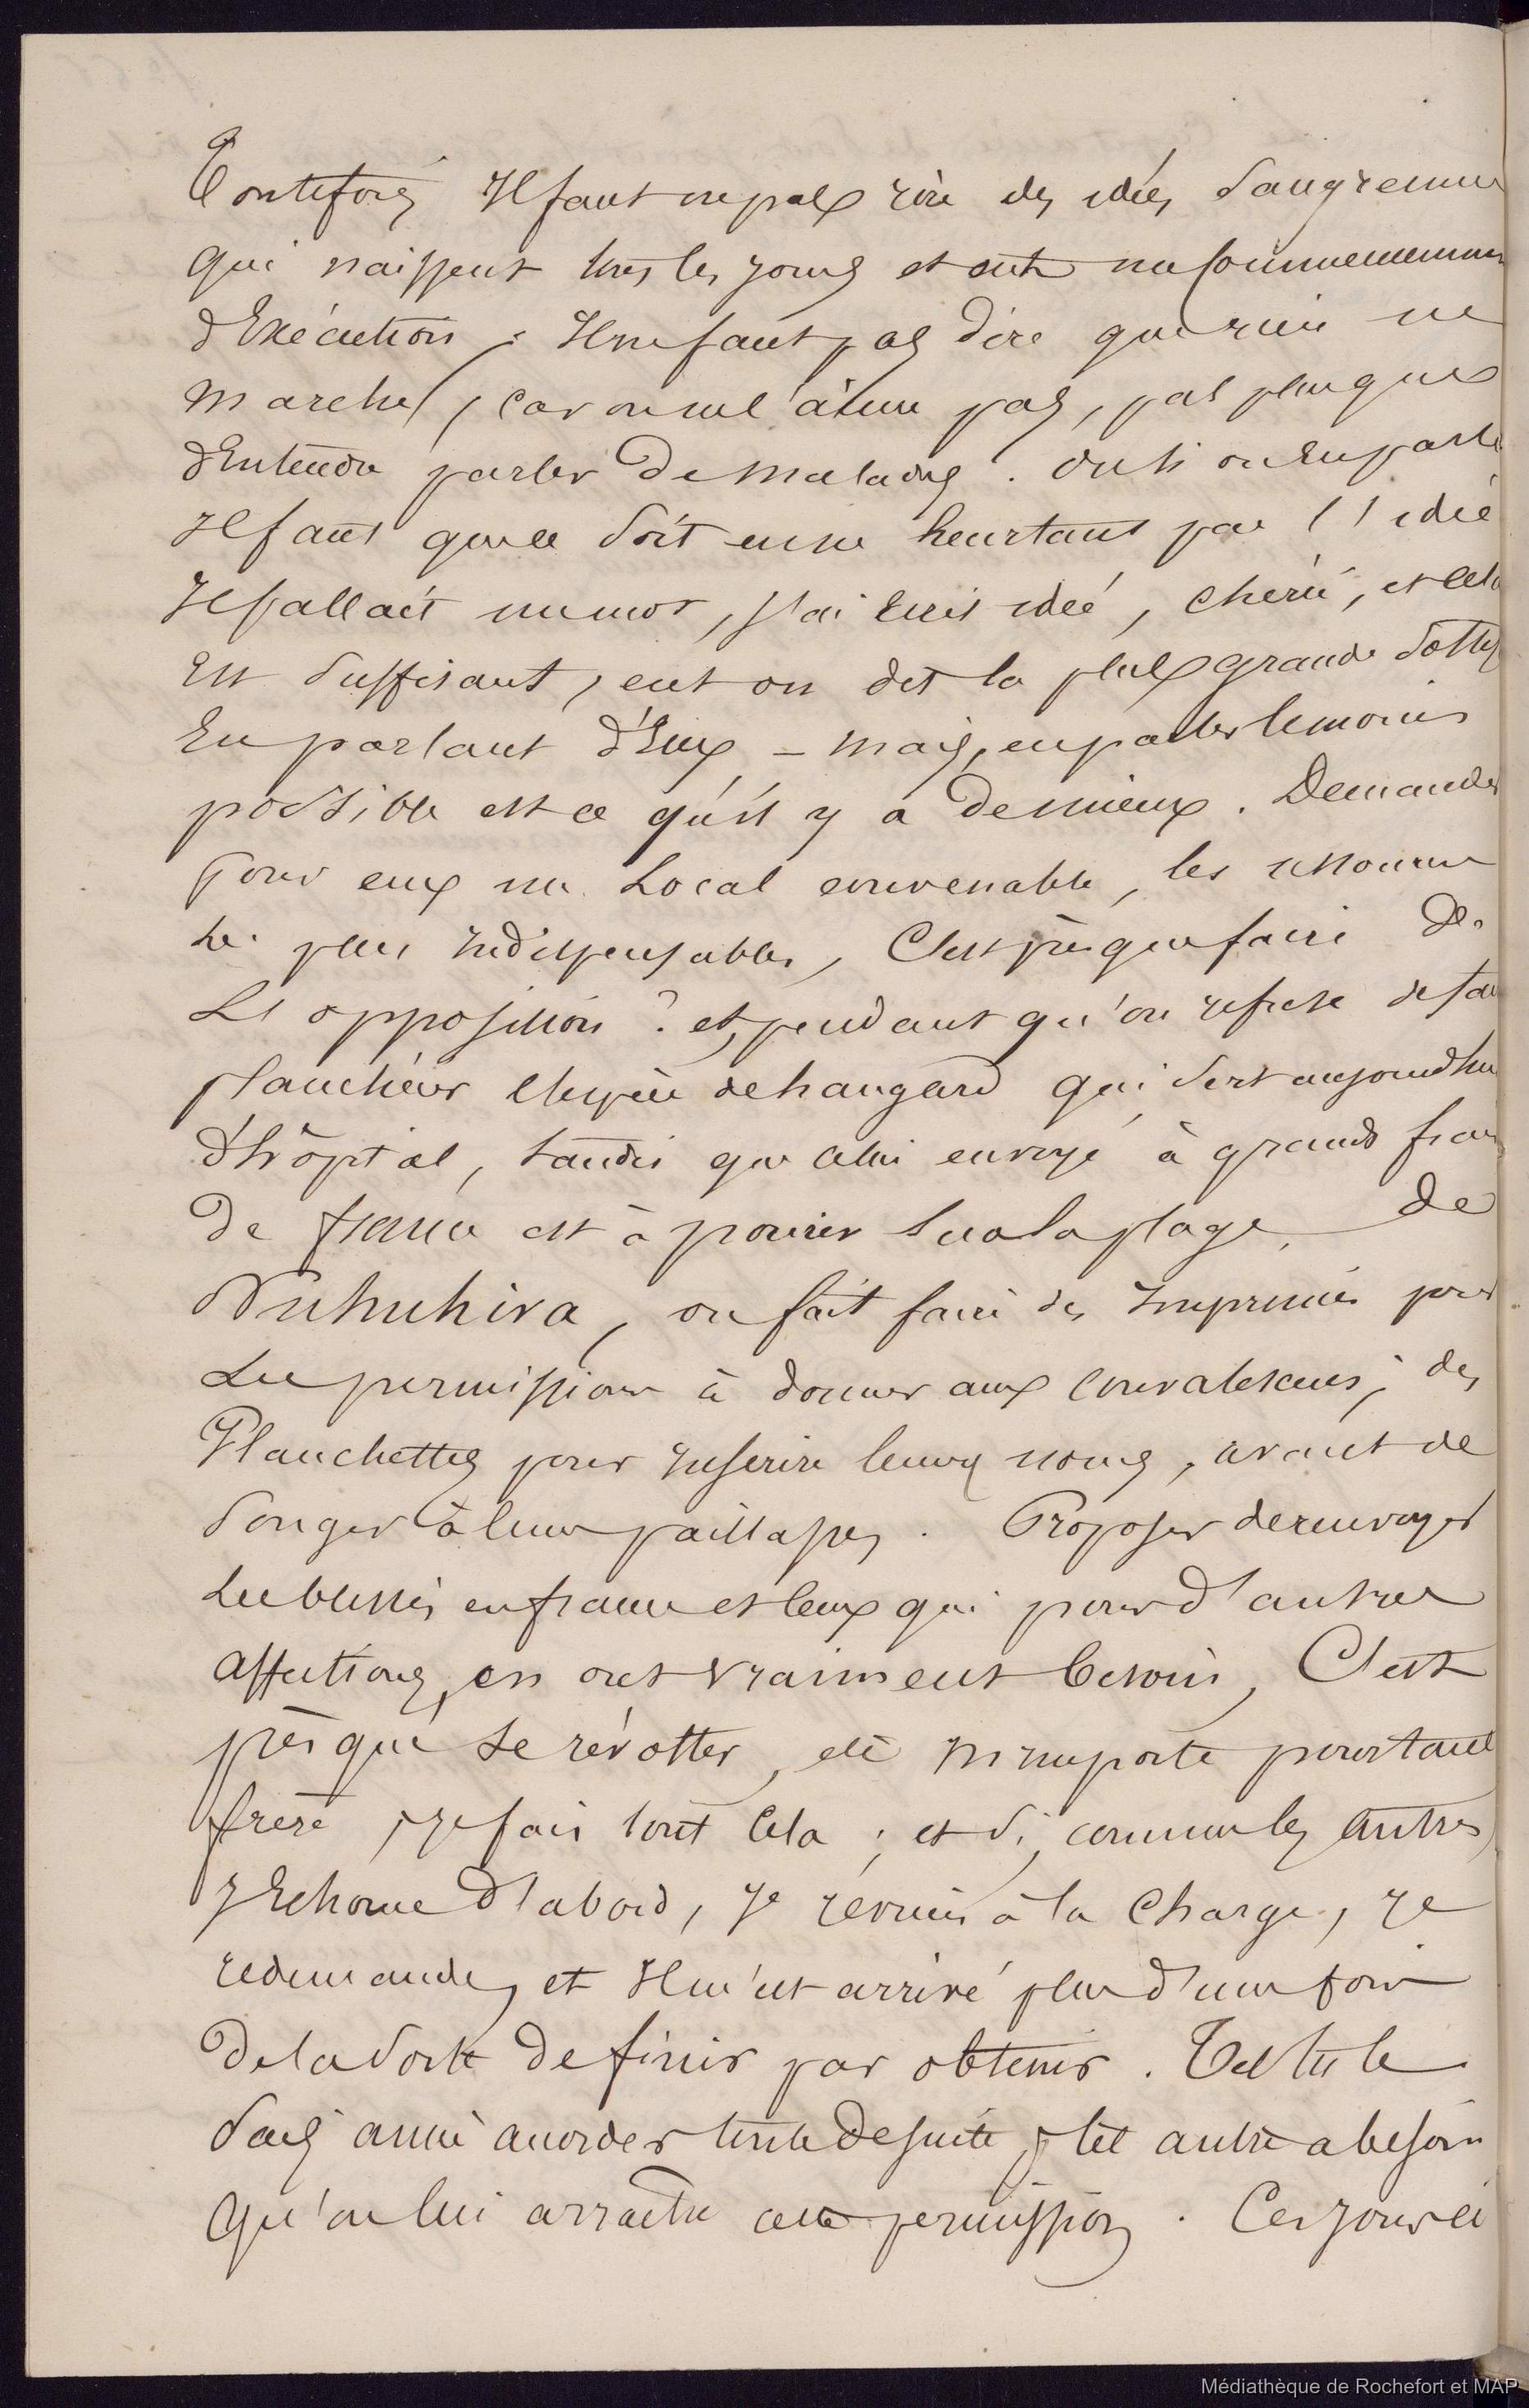 Toutefois Il faut ne pas rire des idées saugrenues
qui naissent tous les jours et ont un commencement
d'Exécution ; Il ne faut pas dire que rien ne
marche, car on ne l'aime pas, pas plus que
d'Entendre parler de malades. ou si on En parle
Il faut que ce soit en ne heurtant pas l'idée
Il fallait un mot, j'ai Ecrit idée, chérie, et cela
Est suffisant, eut on dit la plus grande sottise
En parlant d'Eux – mais, en parler le moins
possible est ce qu'il y a de mieux. Demander
pour eux un Local convenable, les
les plus Indispensables, C'est presque faire de
L'opposition ? et, pendant qu'on refuse de faire
plancheier l'espèce de hangard qui sert aujourd'hui
d'hôpital, tandis que celui envoyé à grands frais
de france est à pourrir sur la plage, de
Nuhuhiva, on fait faire des Imprimés pour
Les permissions à donner aux convalescens, des
Planchettes pour Inscrire leurs noms, avant de
songer à leurs paillasses. Proposer de renvoyer
Les blessés en france et ceux qui pour d'autres
affections, en ont vraiment besoin, C'est
presque se révolter, et N'importe pourtant
frère, je fais tout cela ; et si, comme les autres
J'Echoue d'abord, Je reviens à la charge, Je
redemande, et Il m'est arrivé plus d'une fois
de la sorte de finir par obtenir. Tel titre
sans amie accorder tout de suite, tel autre a besoin
qu'on lui arrache cette permission. Ces jours ci
Médiathèque de Rochefort et MAP